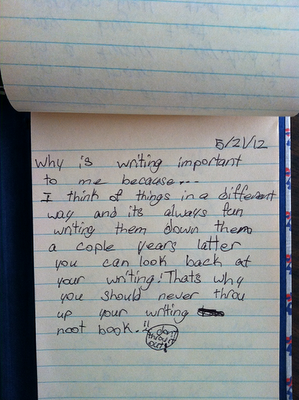 5/21/12
Why is writing important
to me because...
I think of things in a different
way and its always fun
writing them down them
a cople years latter
you can look back at
your writing! Thats why
you should never throu
up your writing
noot book.!!